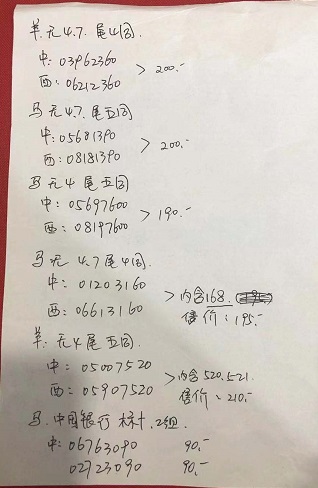 羊无4.7.尾4同.
中: 03962360
西: 06212360 > 200.-
马无4.7.尾五同
中: 05681390
西: 08181390 > 200.-
马无4尾五同
中: 05697600
西: 08197600 > 190.-
马无4.7尾4同.
中: 01203160
西: 06613160 > 内含168.
售价: 195.-
羊.无4尾五同.
中: 05007520
西: 05907520 > 内含520.521.
售价: 210.-
马.中国银行 标十.2组.
中: 06763090 90.-
02723090 90.-